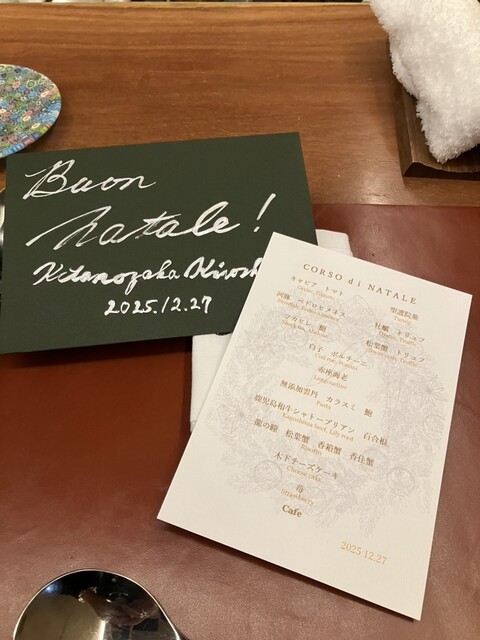 Buon
Natale!
Kitanozaka Kinosh
2025.12.27
CORSO di NATALE
キャビア トマト
Caviar, Tomato
聖護院蕪
Turnip
河豚 ペドロヒメネス
牡蠣 トリュフ
Oyster, Truffle
フカヒレ 鮑
Shark fin, Abalone
松葉蟹 トリュフ
Snow crab, Truffle
白子 ポルチーニ
Cod roe, Porcini
赤座海老
Langoustine
無添加雲丹 カラスミ 鮑
Pasta
鹿児島和牛シャトーブリアン 百合根
Kagoshima beef, Lily root
龍の瞳 松葉蟹 香箱蟹 香住蟹
Risotto
木下チーズケーキ
Cheese cake
苺
Strawberry
Cafe
2025 12.27